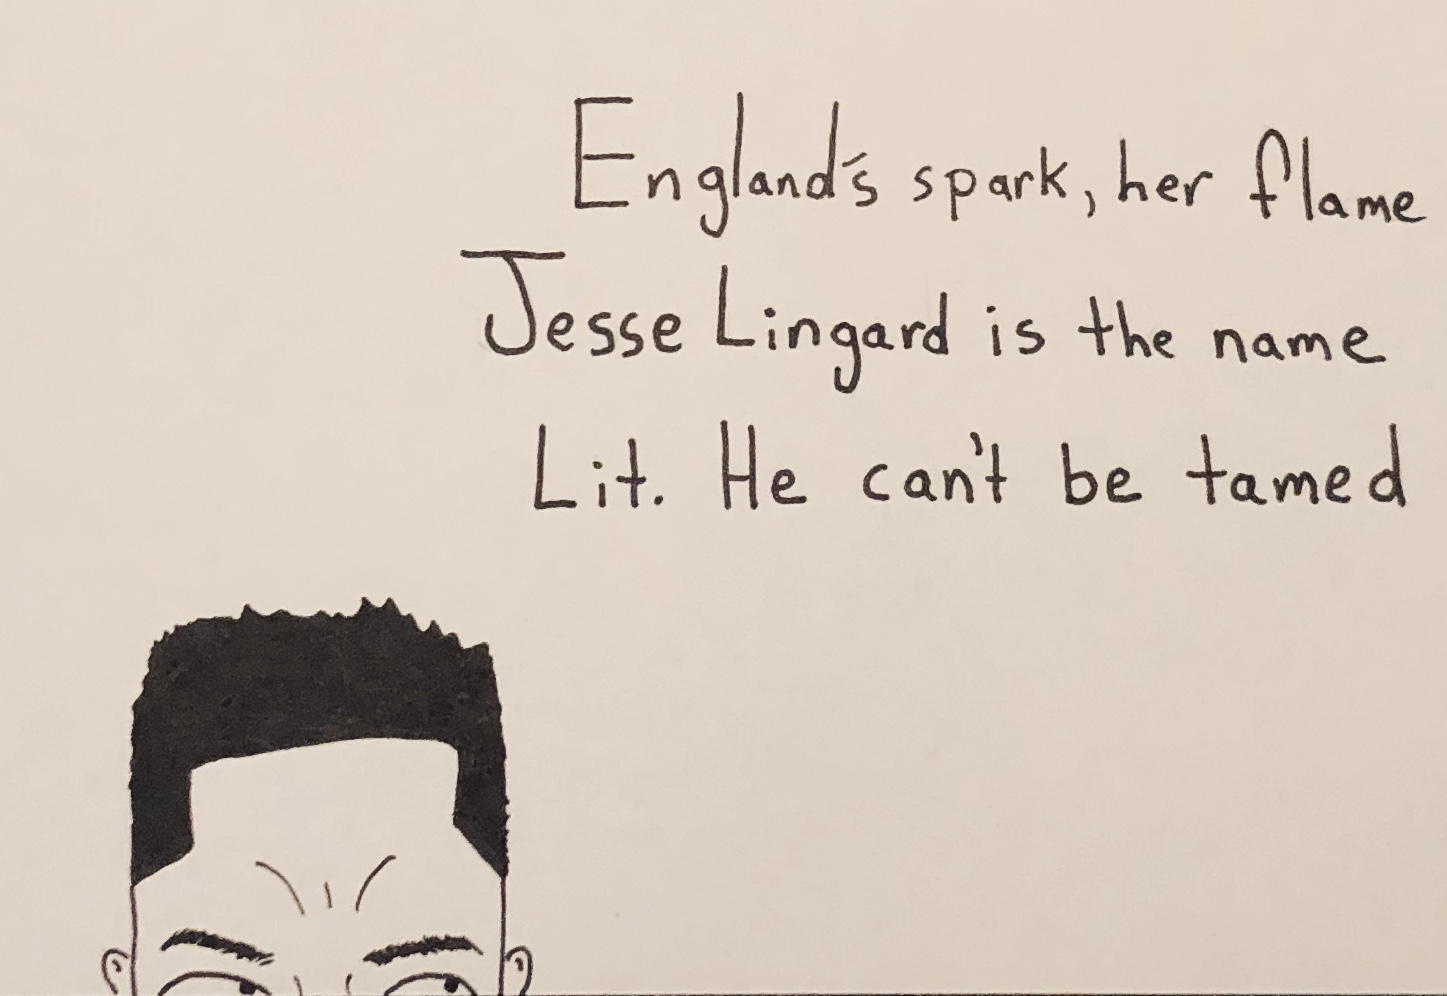 England's spark, her flame
Jesse Lingard is the name
Lit. He can't be tamed